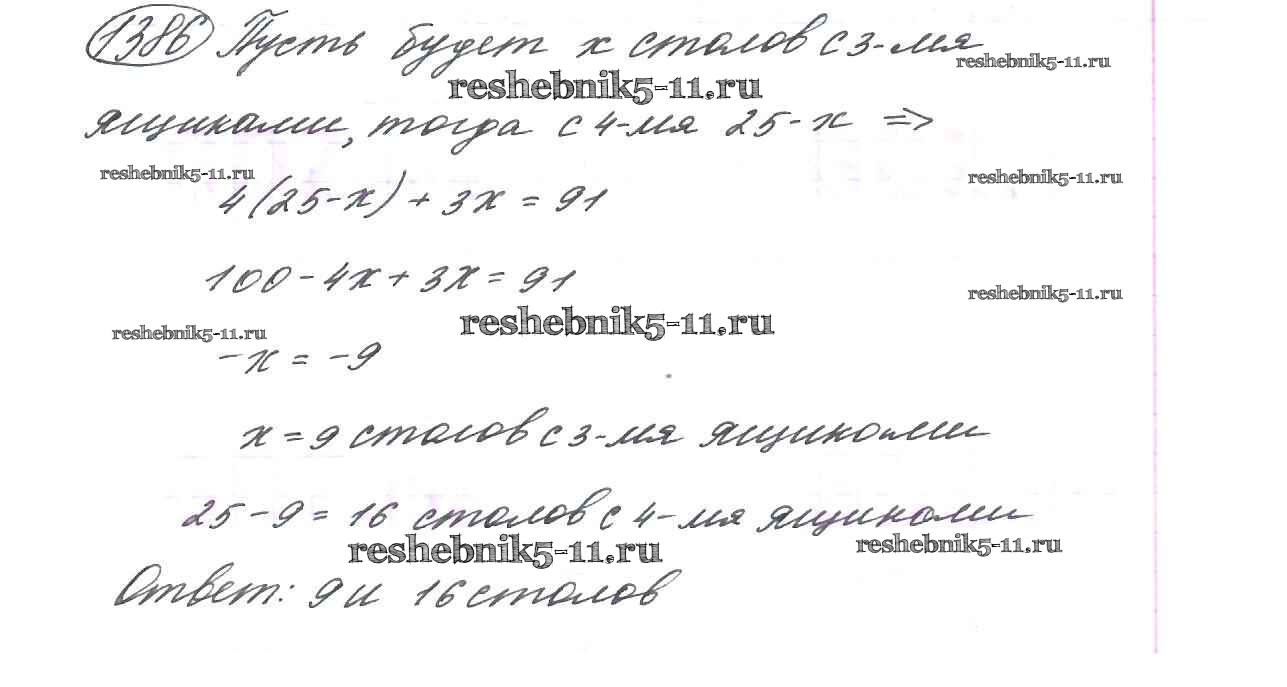 1386 Пусть будет x столов с 3-мя
reshebnik5-11.ru
reshebnik5-11.ru
ящиками, тогда с 4-мя 25-x =>
reshebnik5-11.ru
reshebnik5-11.ru
4(25-x) + 3x = 91
100-4x+3x=91
reshebnik5-11.ru
reshebnik5-11.ru
reshebnik5-11.ru
-x = -9
x = 9 столов с 3-мя ящиками
25-9=16 столов с 4-мя ящиками
reshebnik5-11.ru
reshebnik5-11.ru
Ответ: 9 и 16 столов